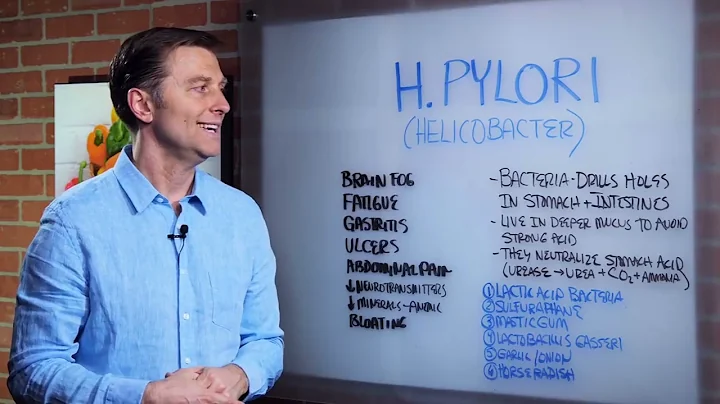 H. PYLORI
(HELICOBACTER)
BRAIN FOG
FATIGUE
GASTRITIS
ULCERS
ABDOMINAL PAIN
↓ NEUROTRANSMITTERS
↓ MINERALS - ANEMIC
BLOATING
- BACTERIA - DRILLS HOLES
IN STOMACH + INTESTINES
- LIVE IN DEEPER MUCUS TO AVOID
STRONG ACID
- THEY NEUTRALIZE STOMACH ACID
(UREASE → UREA + CO2 + AMMONIA)
① LACTIC ACID BACTERIA
② SULFURAPHANE
③ MASTIC GUM
④ LACTOBACILLUS GASSERI
⑤ GARLIC/ONION
⑥ HORSERADISH